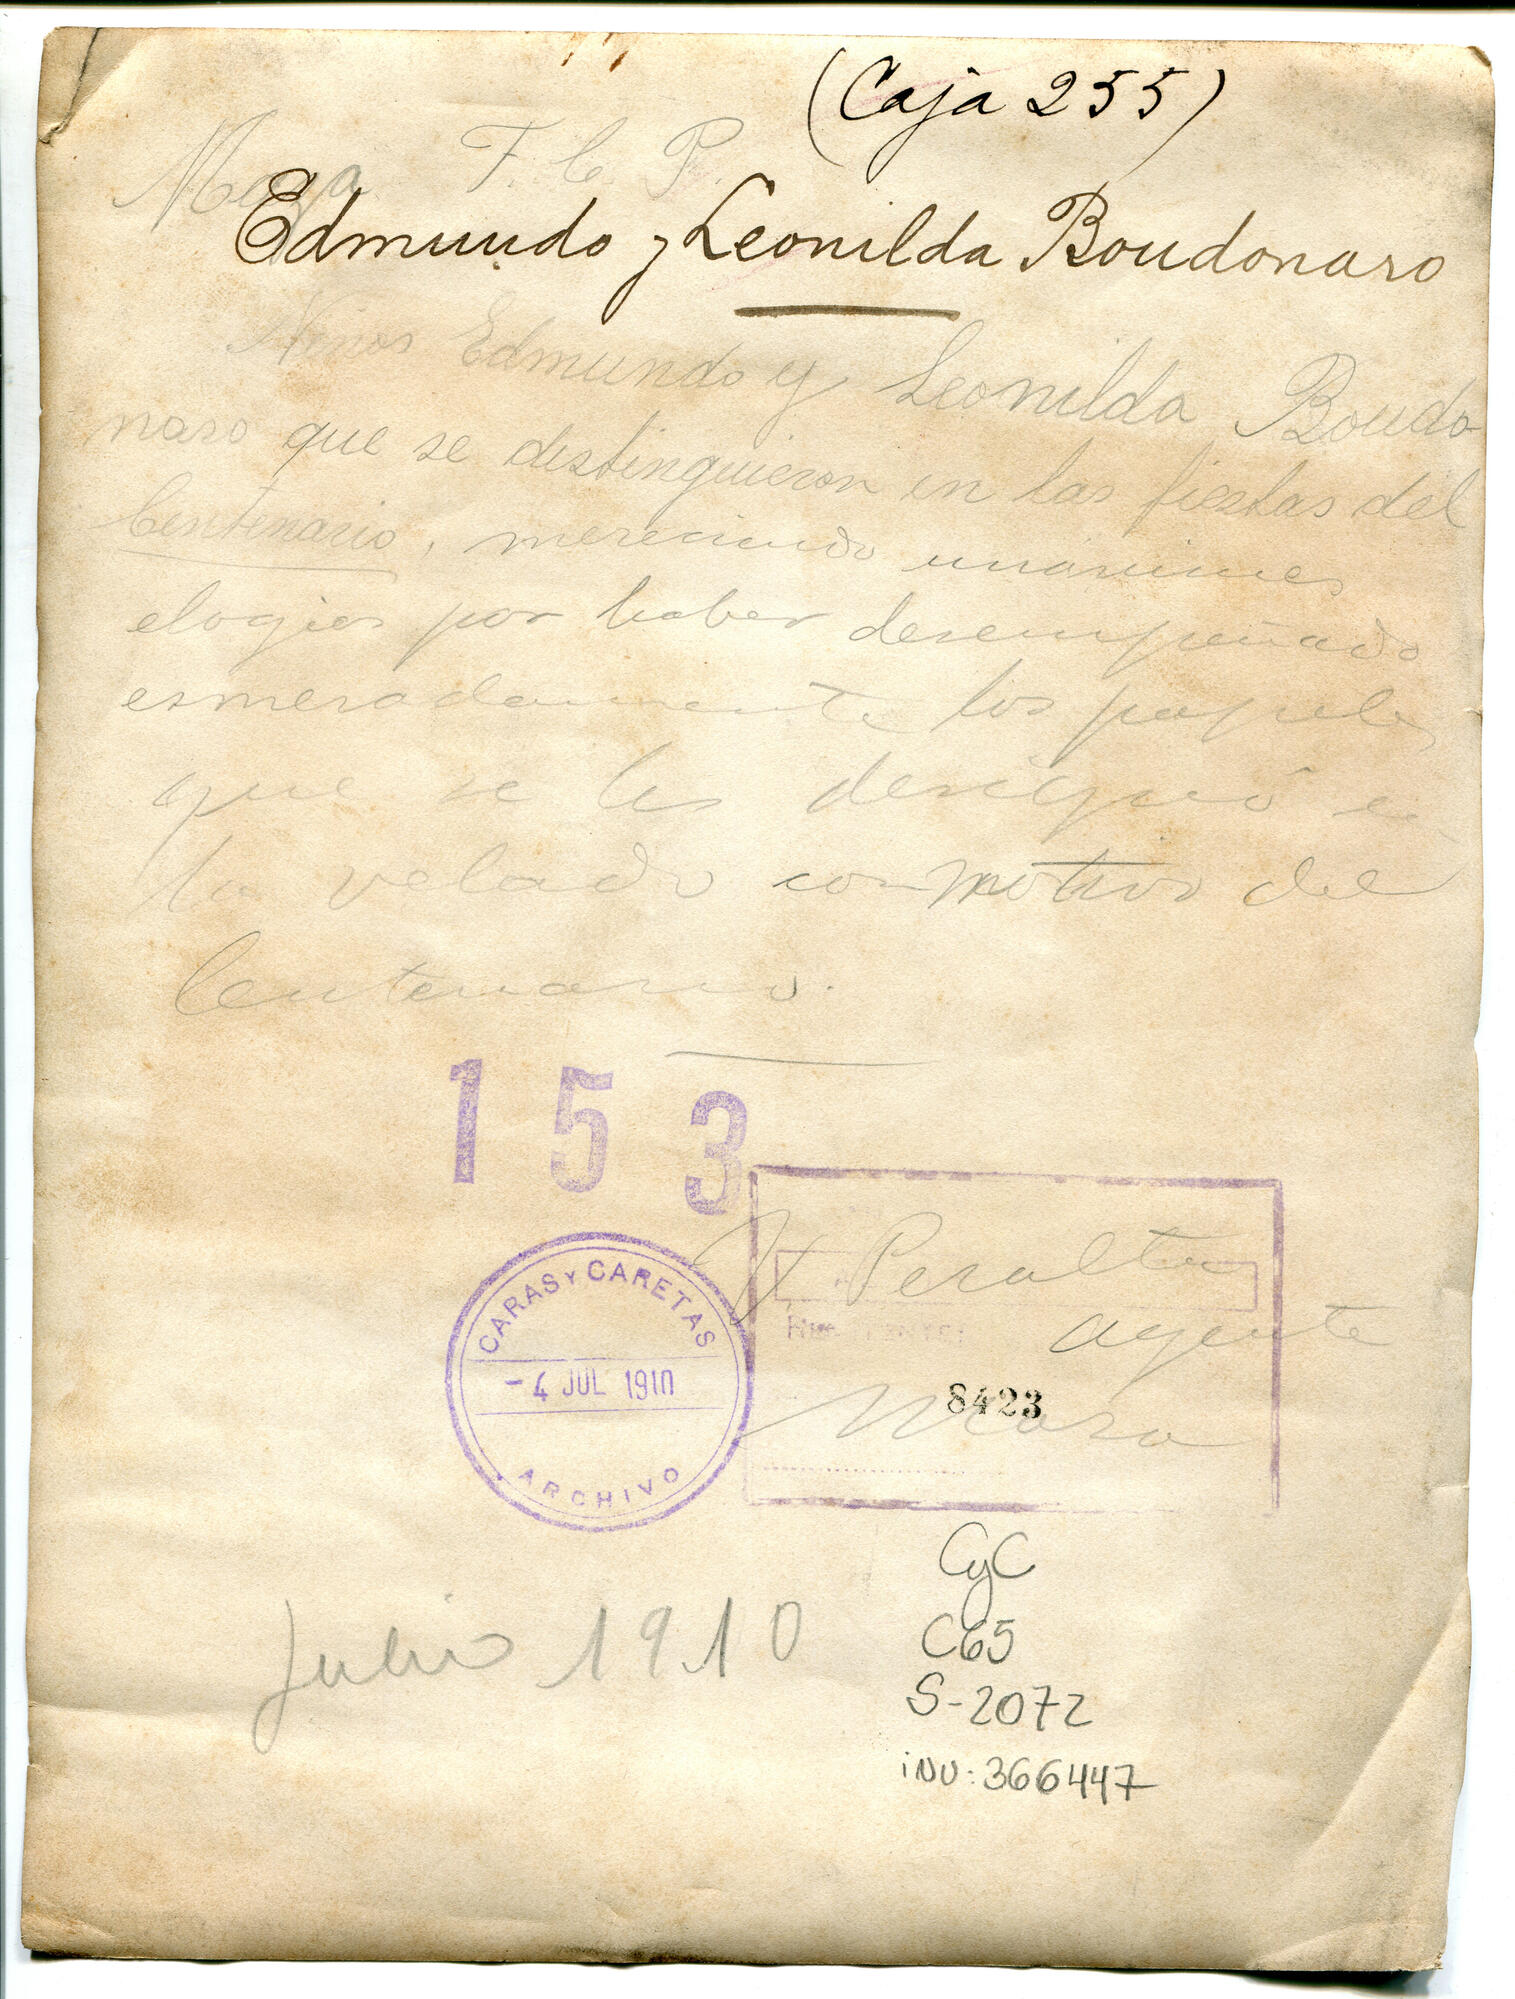 (Caja 255)
F. C. P.
Edmundo y Leonilda Boudonaro
Niños Edmundo y Leonilda Boudo-
naro que se distinguieron en las fiestas del
Centenario, mereciendo unánimes
elogios por haber desempeñado
esmeradamente los papeles
que se les designó en
la velada con motivo del
Centenario.
153
Peralta
agente
CARAS Y CARETAS
- 4 JUL 1910
ARCHIVO
8423
Julio 1910
CyC
C65
S-2072
inv: 366447